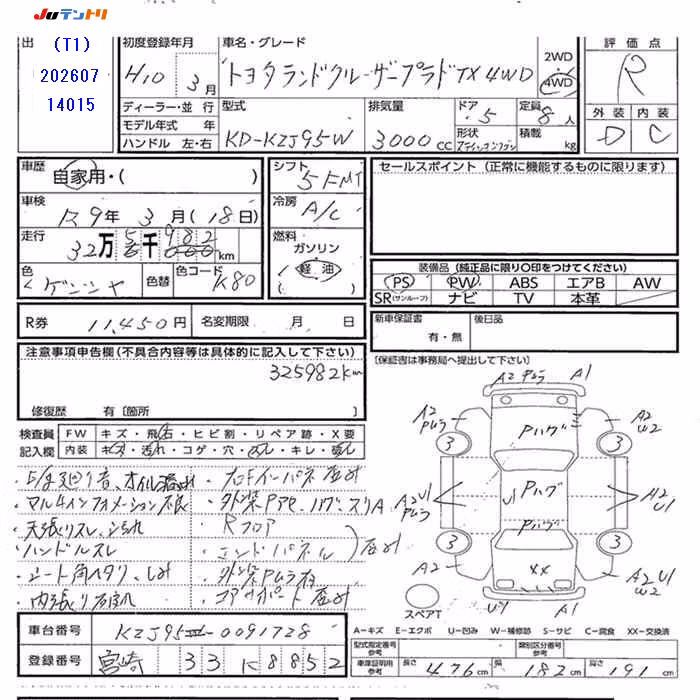 JUテントリ
出
(T1)
202607
14015
初度登録年月
H10年3月
車名・グレード
トヨタランドクルーザープラド TX 4WD
2WD
4WD
評価点
R
外装 内装
D C
ディーラー・並行
モデル年式 年
ハンドル 左・右
型式
KD-KZJ95W
排気量
3000 CC
ドア
5
定員
8人
形状
積載
kg
車歴
自家用・( )
車検
R9年3月(18日)
走行
32万5千982km
色
ゲンシャ
色替
色コード
K80
シフト
5FMT
冷房
A/C
燃料
ガソリン
軽油
( )
セールスポイント (正常に機能するものに限ります)
装備品 (純正品に限り○印をつけてください)
PS PW ABS エアB AW
SR(サンルーフ) ナビ TV 本革
R券 11,450円
名変期限 月 日
新車保証書
有・無
後日品
(保証書は事務局へ提出して下さい)
注意事項申告欄(不具合内容等は具体的に記入して下さい)
325982km
修復歴 有〔箇所 〕
検査員
記入欄
FW キズ・飛石・ヒビ割・リペア跡・X要
内装 キズ・汚れ・コゲ・穴・凹・キレ・破レ
・マルチインフォメーション不良
・天張りスレ、汚れ
・ハンドルスレ
・シート角ヘタリ、しみ
・Rフロア
・エンドパネル
A2 Pムラ A1
A2 Pムラ
A2 W2
Pハゲ
3 3
A2 U1 Pムラ
Pハゲ
A2 U1
Pハゲ
3 3
A2
XX
A2 U1 W2
U1 A1
スペアT
A-キズ E-エクボ U-凹み W-補修跡 S-サビ C-腐食 XX-交換済
車台番号
KZJ95-0091728
登録番号
宮崎 33 K 8852
型式指定番号 参考
類別区分番号 参考
車庫証明用 参考
長さ 476cm
幅 182cm
高さ 191cm